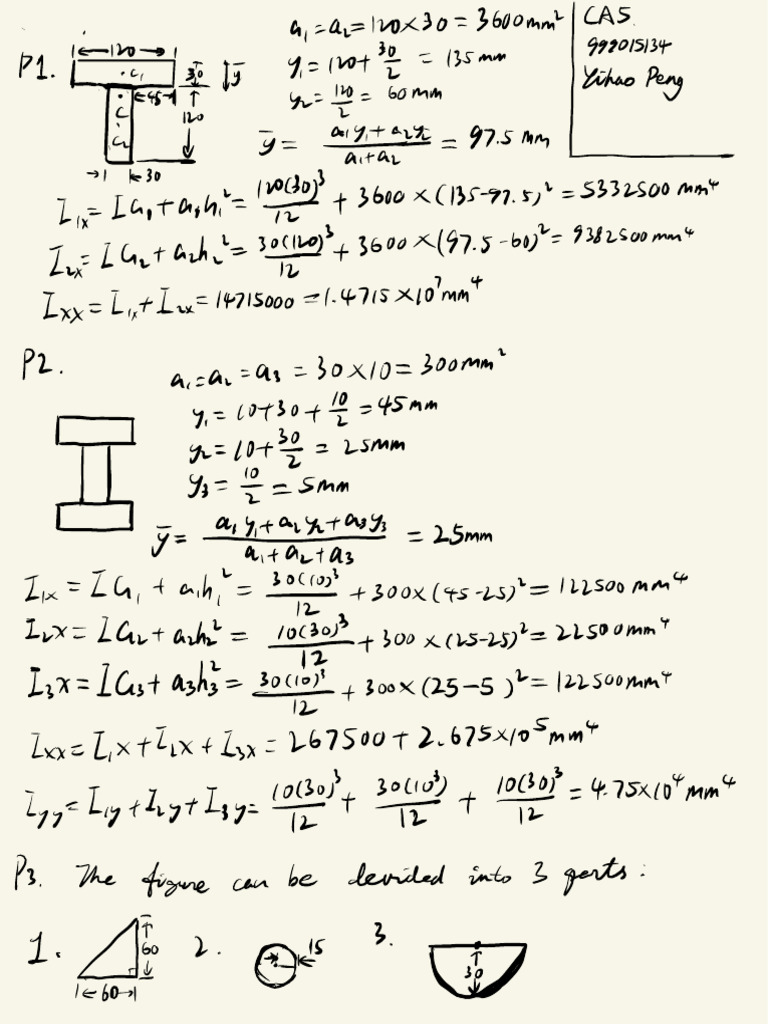 CA5.
999015134
Yihao Peng
P1.
120
C₁
30
ȳ
45
120
C
C₂
30
a₁=a₂=120×30=3600mm²
y₁=120+30/2=135mm
y₂=120/2=60mm
ȳ=(a₁y₁+a₂y₂)/(a₁+a₂)=97.5mm
I₁ₓ=IG₁+a₁h₁²=120(30)³/12+3600×(135-97.5)²=5332500mm⁴
I₂ₓ=IG₂+a₂h₂²=30(120)³/12+3600×(97.5-60)²=9382500mm⁴
Ixx=I₁ₓ+I₂ₓ=14715000=1.4715×10⁷mm⁴
P2.
a₁=a₂=a₃=30×10=300mm²
y₁=10+30+10/2=45mm
y₂=10+30/2=25mm
y₃=10/2=5mm
ȳ=(a₁y₁+a₂y₂+a₃y₃)/(a₁+a₂+a₃)=25mm
I₁x=IG₁+a₁h₁²=30(10)³/12+300×(45-25)²=122500mm⁴
I₂x=IG₂+a₂h₂²=10(30)³/12+300×(25-25)²=22500mm⁴
I₃x=IG₃+a₃h₃²=30(10)³/12+300×(25-5)²=122500mm⁴
Ixx=I₁x+I₂x+I₃x=267500+2.675×10⁵mm⁴
Iyy=I₁y+I₂y+I₃y=10(30)³/12+30(10³)/12+10(30)³/12=4.75×10⁴mm⁴
P3. The figure can be devided into 3 parts:
1.
60
60
2.
15
3.
30